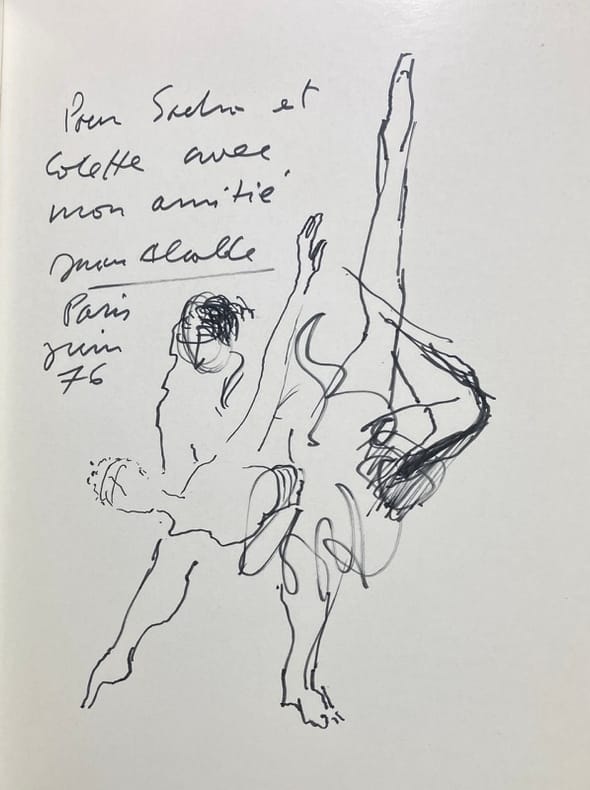 Pour Sacha et
Colette avec
mon amitié
Juan Alcalde
Paris
juin
76